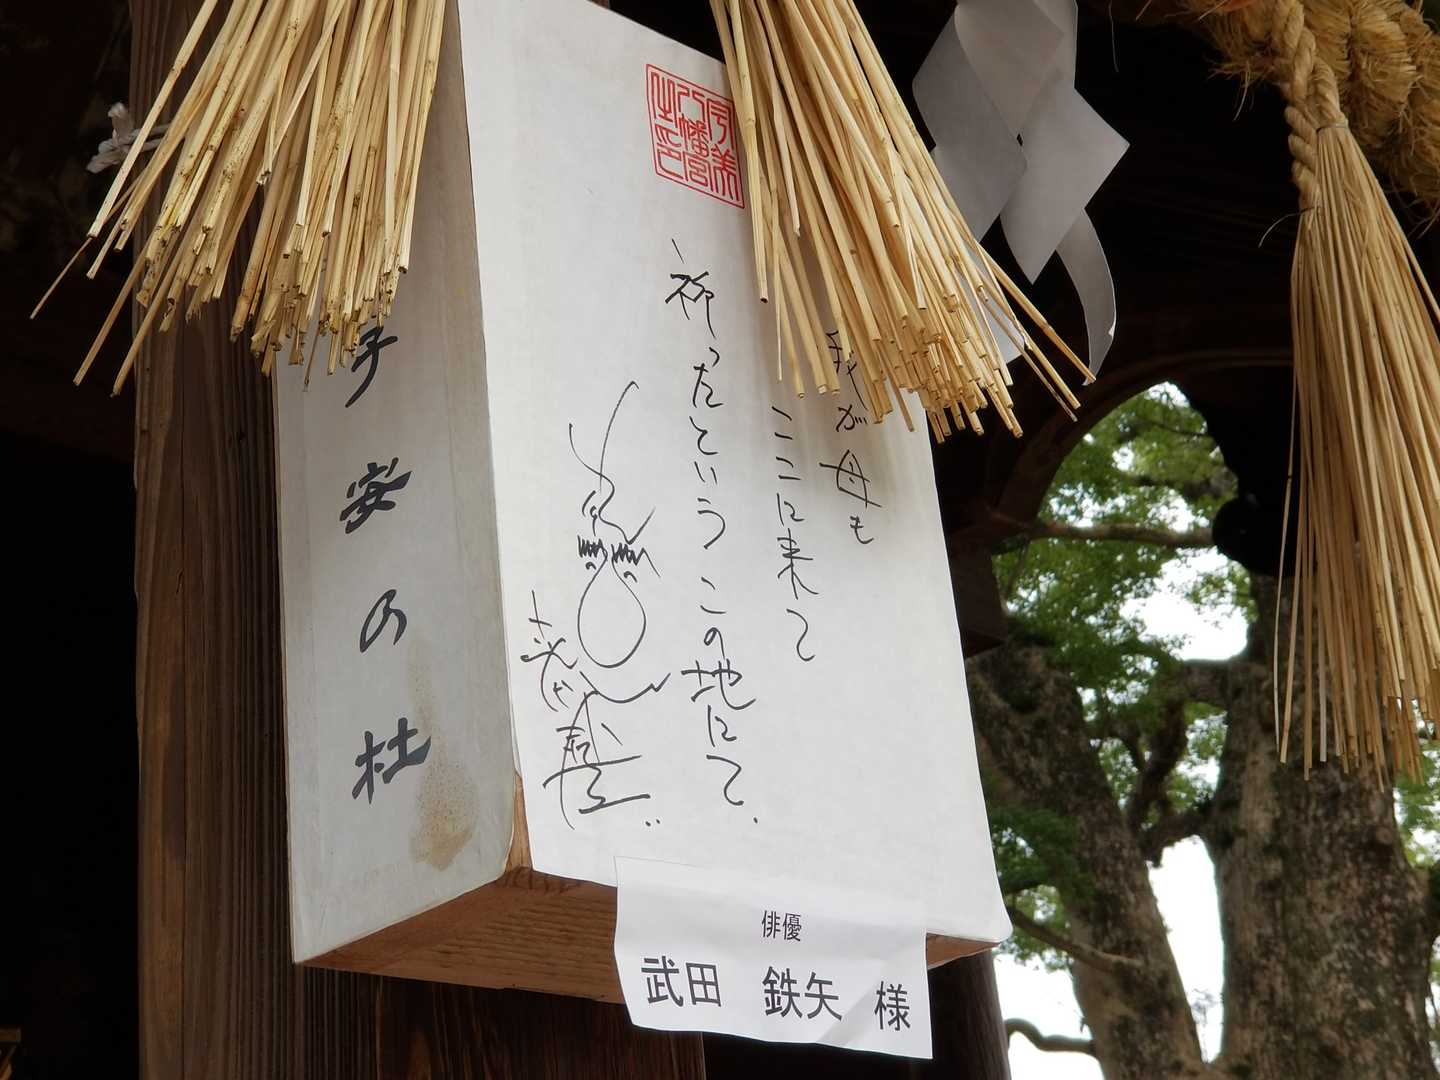 宇美
八幡宮
之印
我が母も
ここに来て
祈ったという この地にて
子安の杜
俳優
武田 鉄矢 様